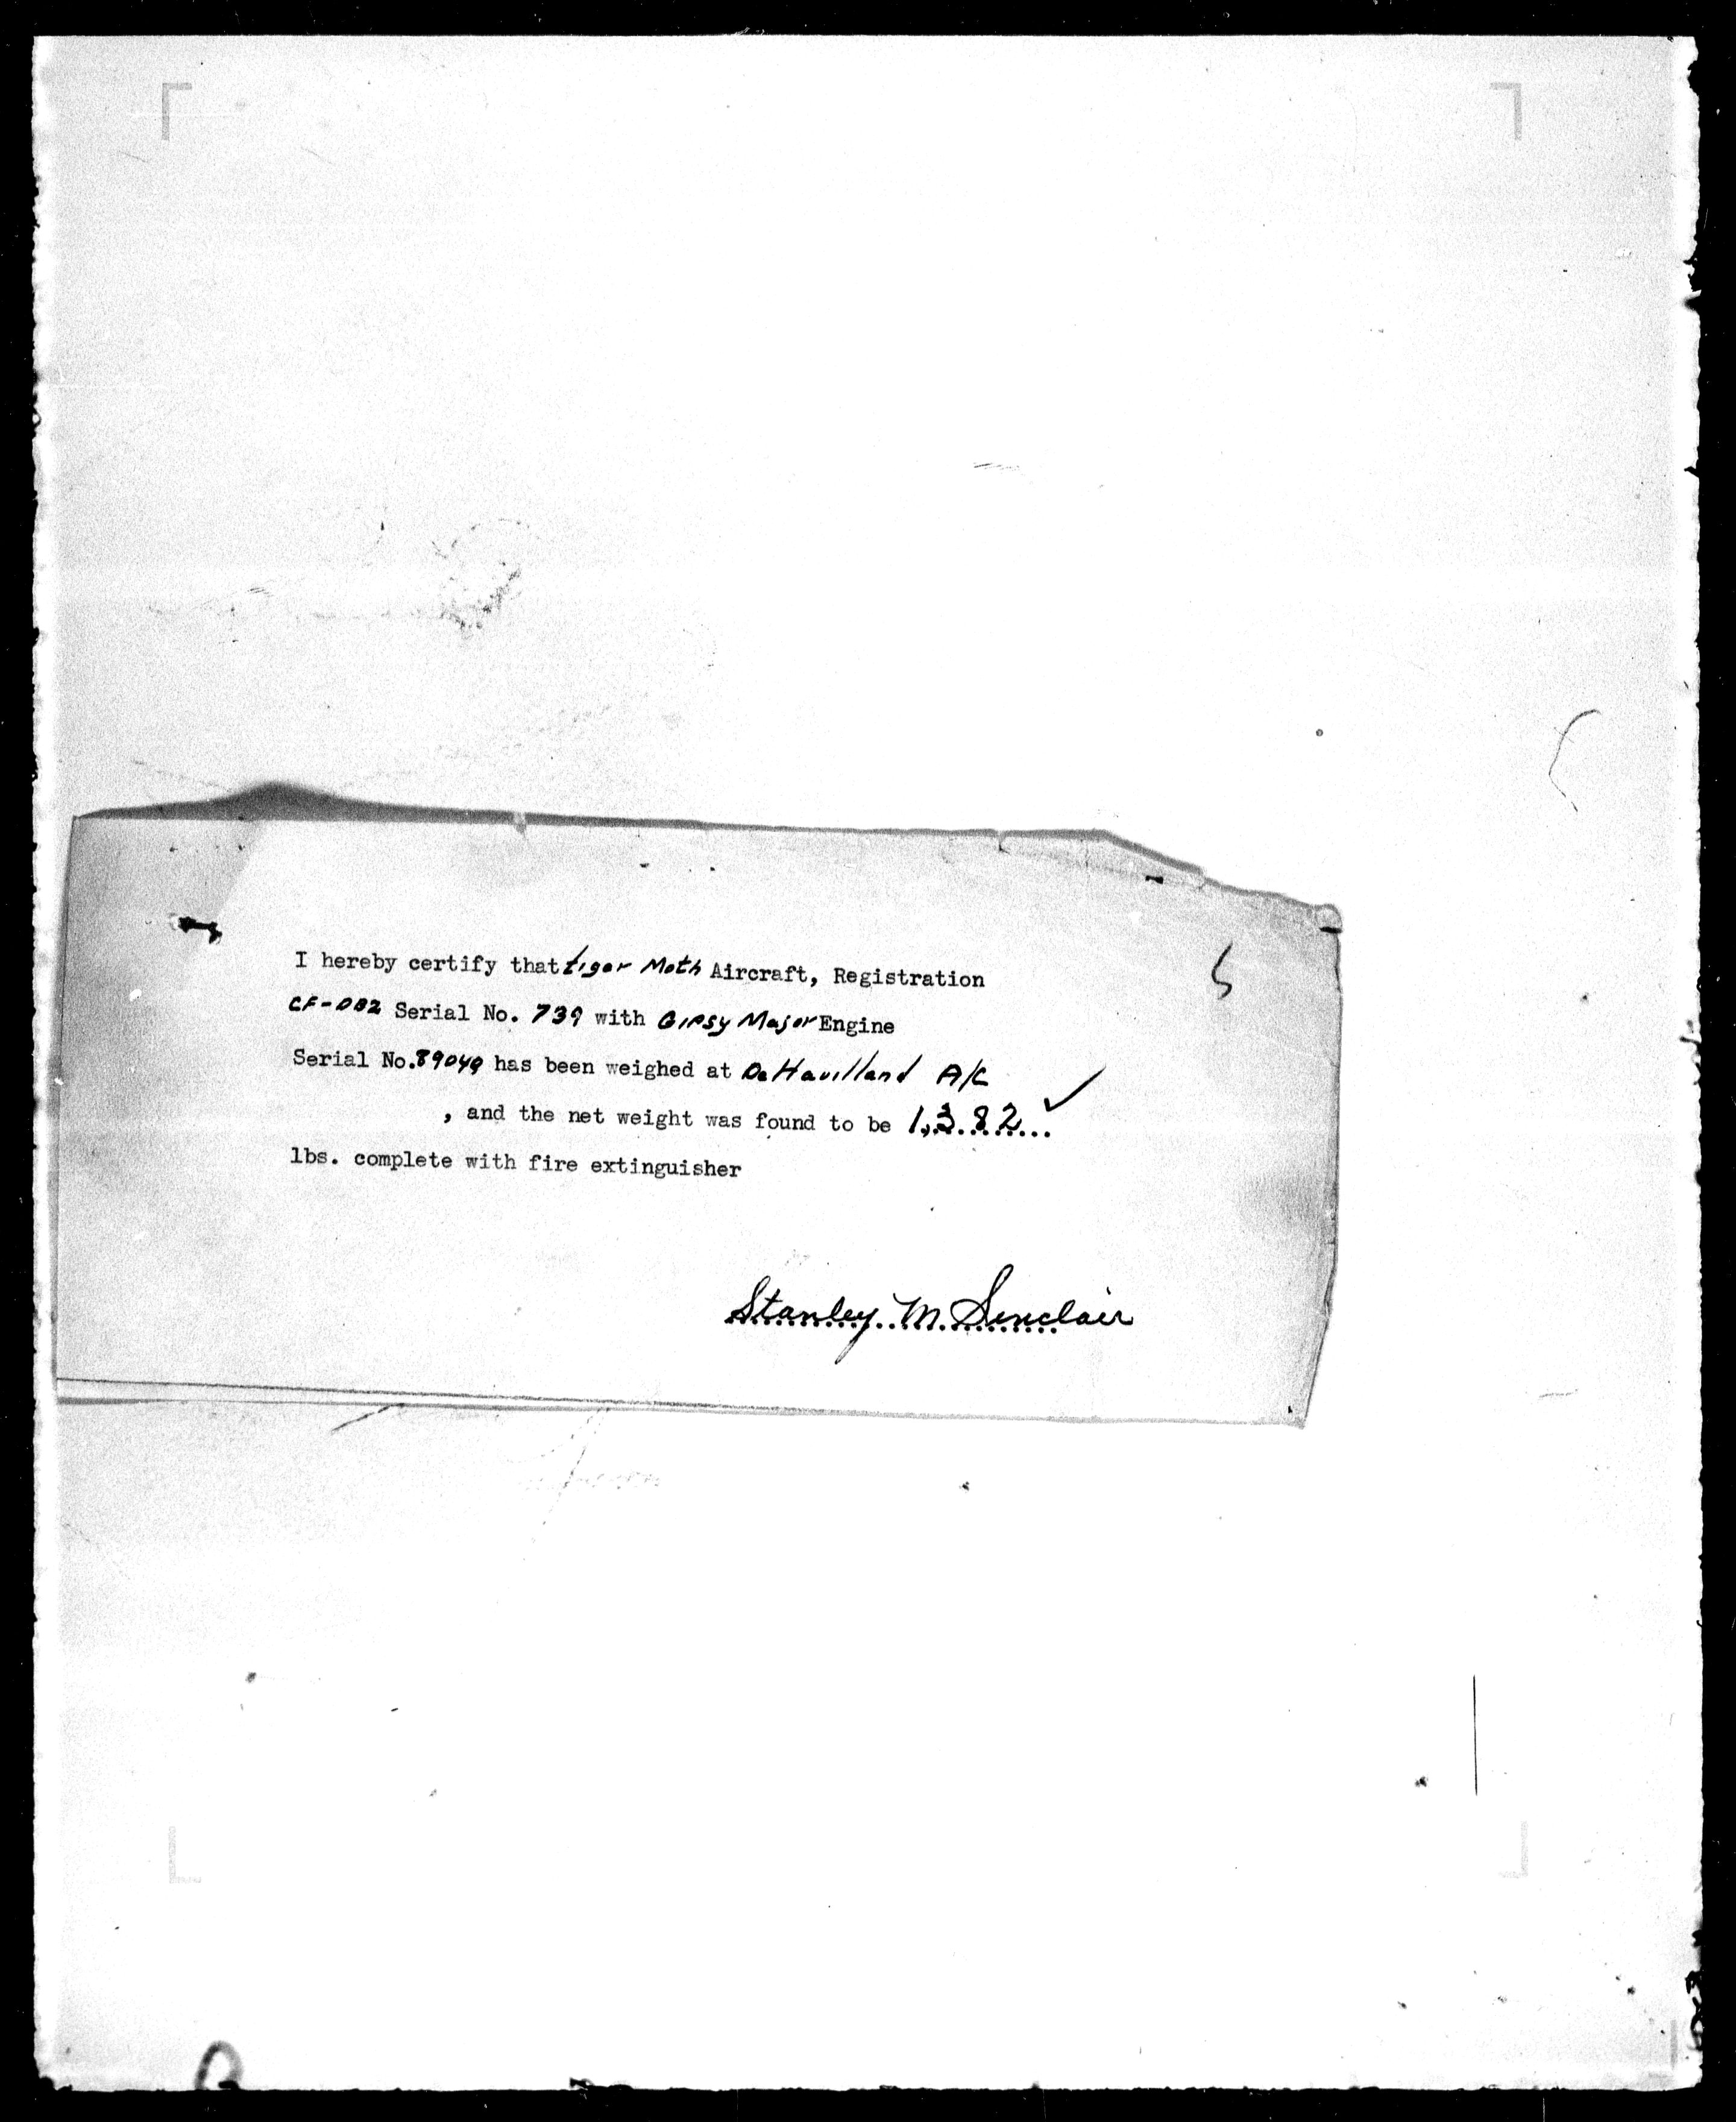 I hereby certify that tiger Moth Aircraft, Registration
CF-DBZ Serial No. 739 with Gipsy Major Engine
Serial No. 89049 has been weighed at DeHavilland A/C
, and the net weight was found to be 1,382
lbs. complete with fire extinguisher
Stanley M. Sinclair